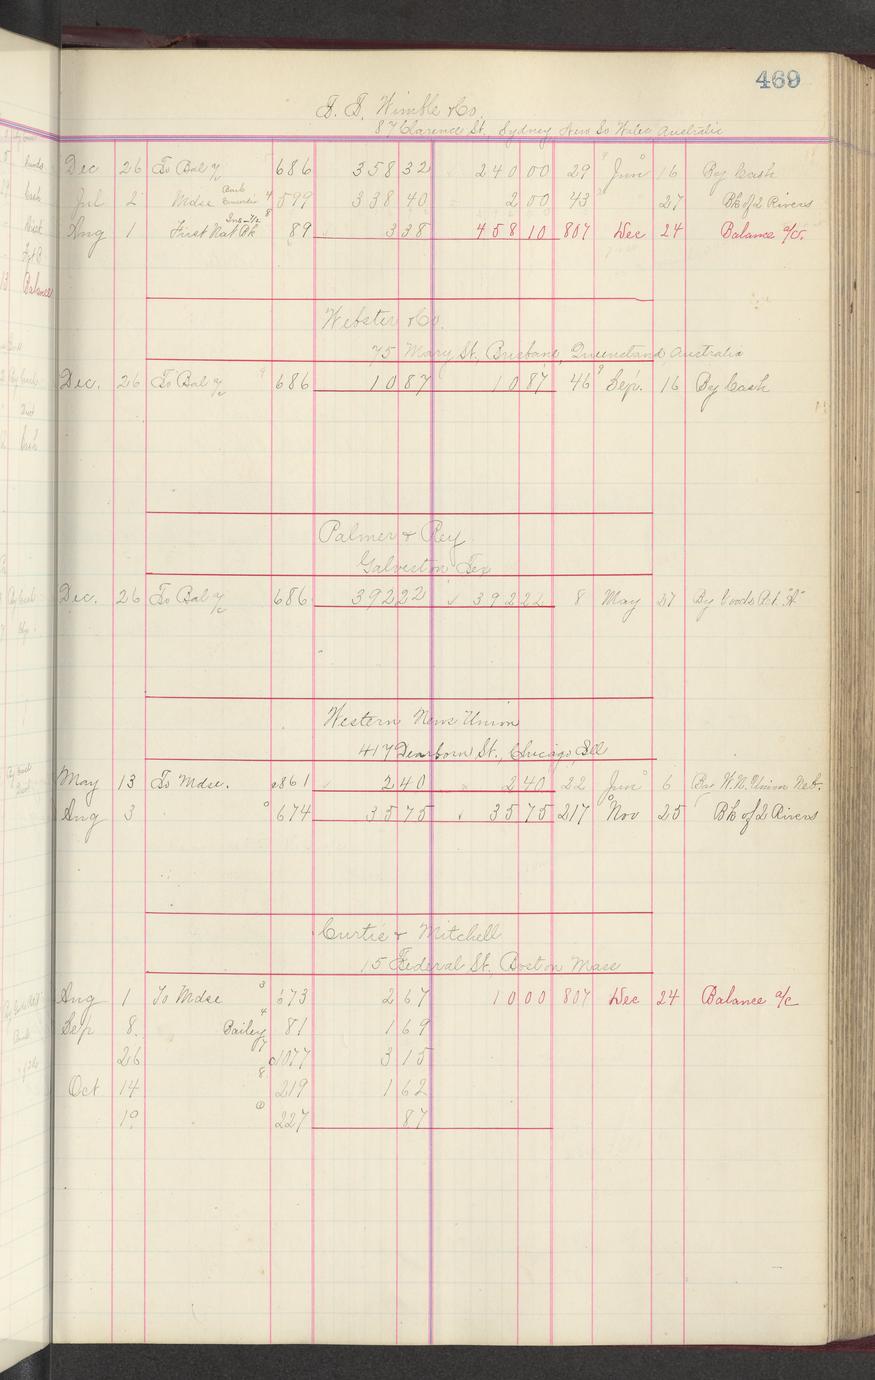 469
F. T. Wimble & Co.
87 Clarence St., Sydney New So Wales Australia
Dec 26 To Bal a/c 686 358 32 240 00 29 Jun 16 By Cash
Jul 2 Mdse 599 338 40 2 00 43 27 Bk of 2 Rivers
Aug 1 First Nat Bk 89 3 38 458 10 807 Dec 24 Balance a/c.
Webster & Co.
75 Mary St., Brisbane, Queensland, Australia
Dec. 26 To Bal a/c 686 10 87 10 87 46 Sep. 16 By Cash
Palmer & Rey
Galveston Tex
Dec. 26 To Bal a/c 686 392 22 392 22 8 May 27 By Goods
Western News Union
417 Dearborn St., Chicago, Ill
May 13 To Mdse. 861 2 40 2 40 22 Jun 6 W. N. Union Neb.
Aug 3 674 35 75 35 75 217 Nov 25 Bk of 2 Rivers
Curtis & Mitchell
15 Federal St. Boston Mass
Aug 1 To Mdse 673 2 67 10 00 807 Dec 24 Balance a/c
Sep 8. Bailey 81 1 69
26 1077 3 15
Oct 14 219 1 62
19 227 87